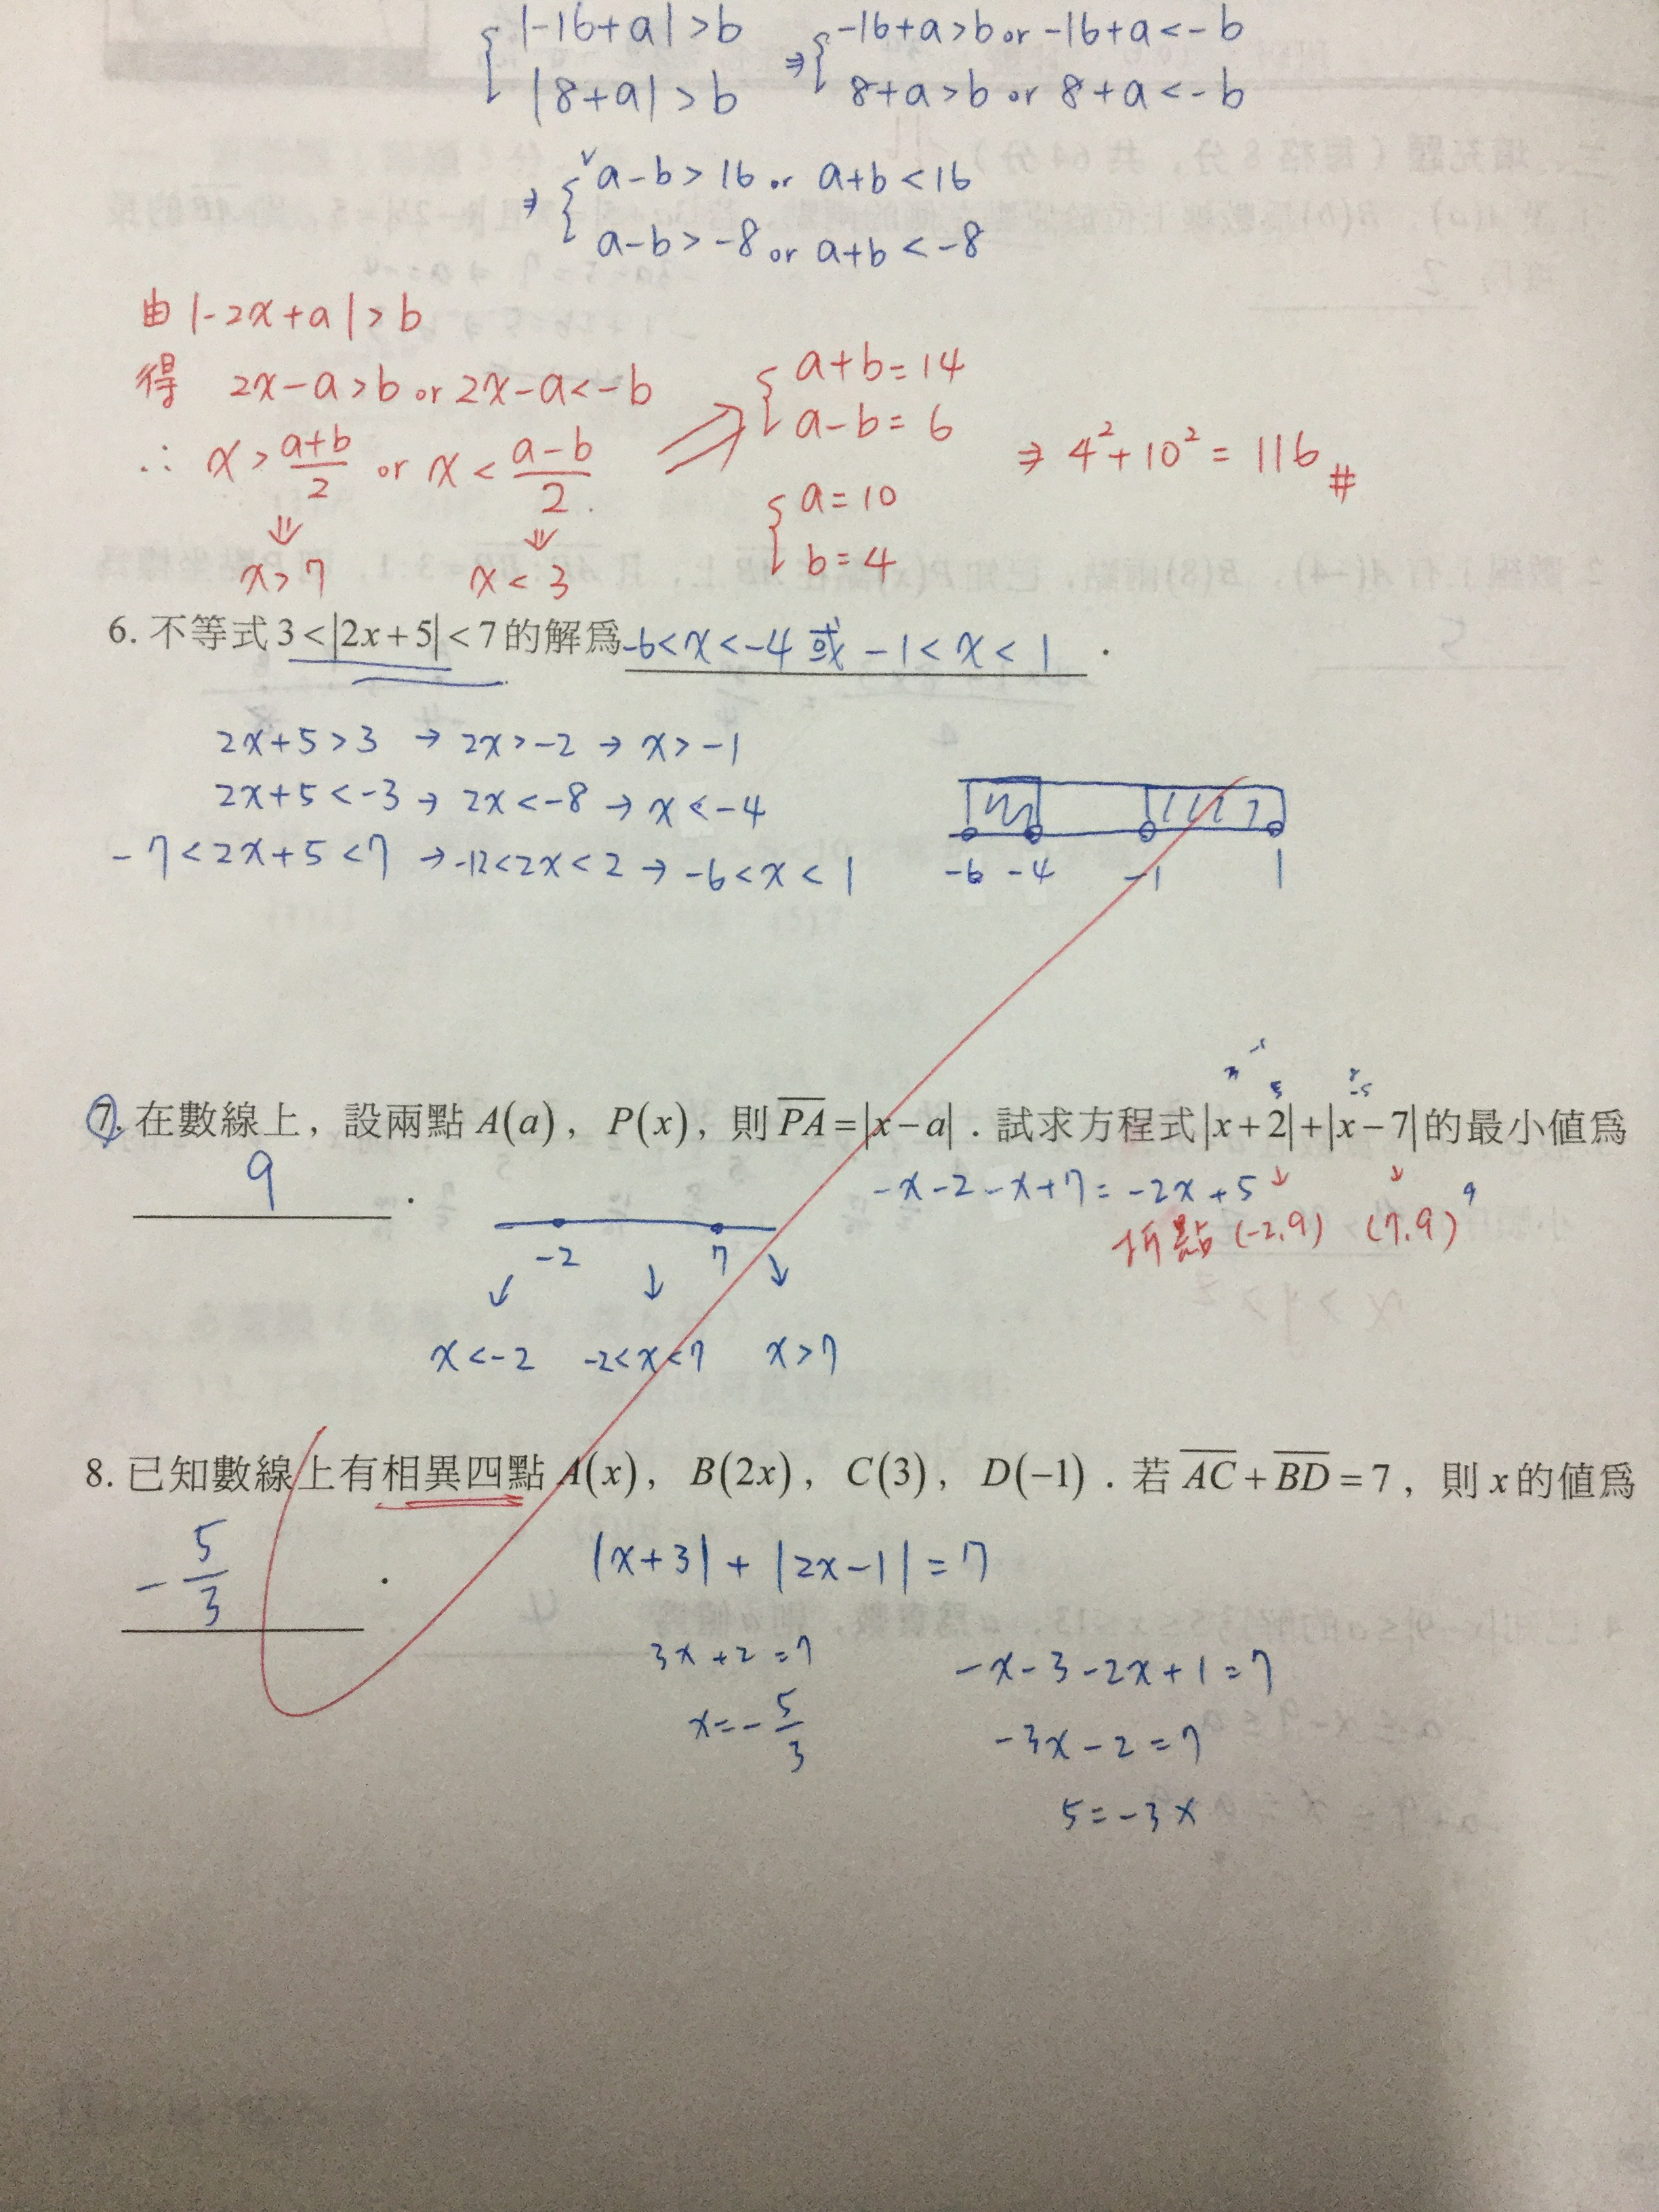 { |-16+a|>b ⇒ { -16+a>b or -16+a<-b
|8+a|>b 8+a>b or 8+a<-b
⇒ { a-b>16 or a+b<16
a-b>-8 or a+b<-8
由 |-2x+a|>b
得 2x-a>b or 2x-a<-b
∴ x>\frac{a+b}{2} or x<\frac{a-b}{2}
⇓ ⇓
x>7 x<3
{ a+b=14
a-b=6
{ a=10
b=4
⇒ 4²+10²=116 #
6. 不等式 3<|2x+5|<7 的解為 -6<x<-4 或 -1<x<1 .
2x+5>3 → 2x>-2 → x>-1
2x+5<-3 → 2x<-8 → x<-4
-7<2x+5<7 → -12<2x<2 → -6<x<1
-6 -4 -1 1
7. 在數線上，設兩點 A(a)，P(x)，則 \overline{PA}=|x-a|．試求方程式 |x+2|+|x-7| 的最小值為
9 .
-x-2-x+7=-2x+5
折點 (-2,9) (7,9)
-2 7
↙ ↓ ↘
x<-2 -2<x<7 x>7
8. 已知數線上有相異四點 A(x)，B(2x)，C(3)，D(-1)．若 \overline{AC}+\overline{BD}=7，則 x 的值為
-\frac{5}{3} .
|x+3|+|2x-1|=7
3x+2=7
x=-\frac{5}{3}
-x-3-2x+1=7
-3x-2=7
5=-3x